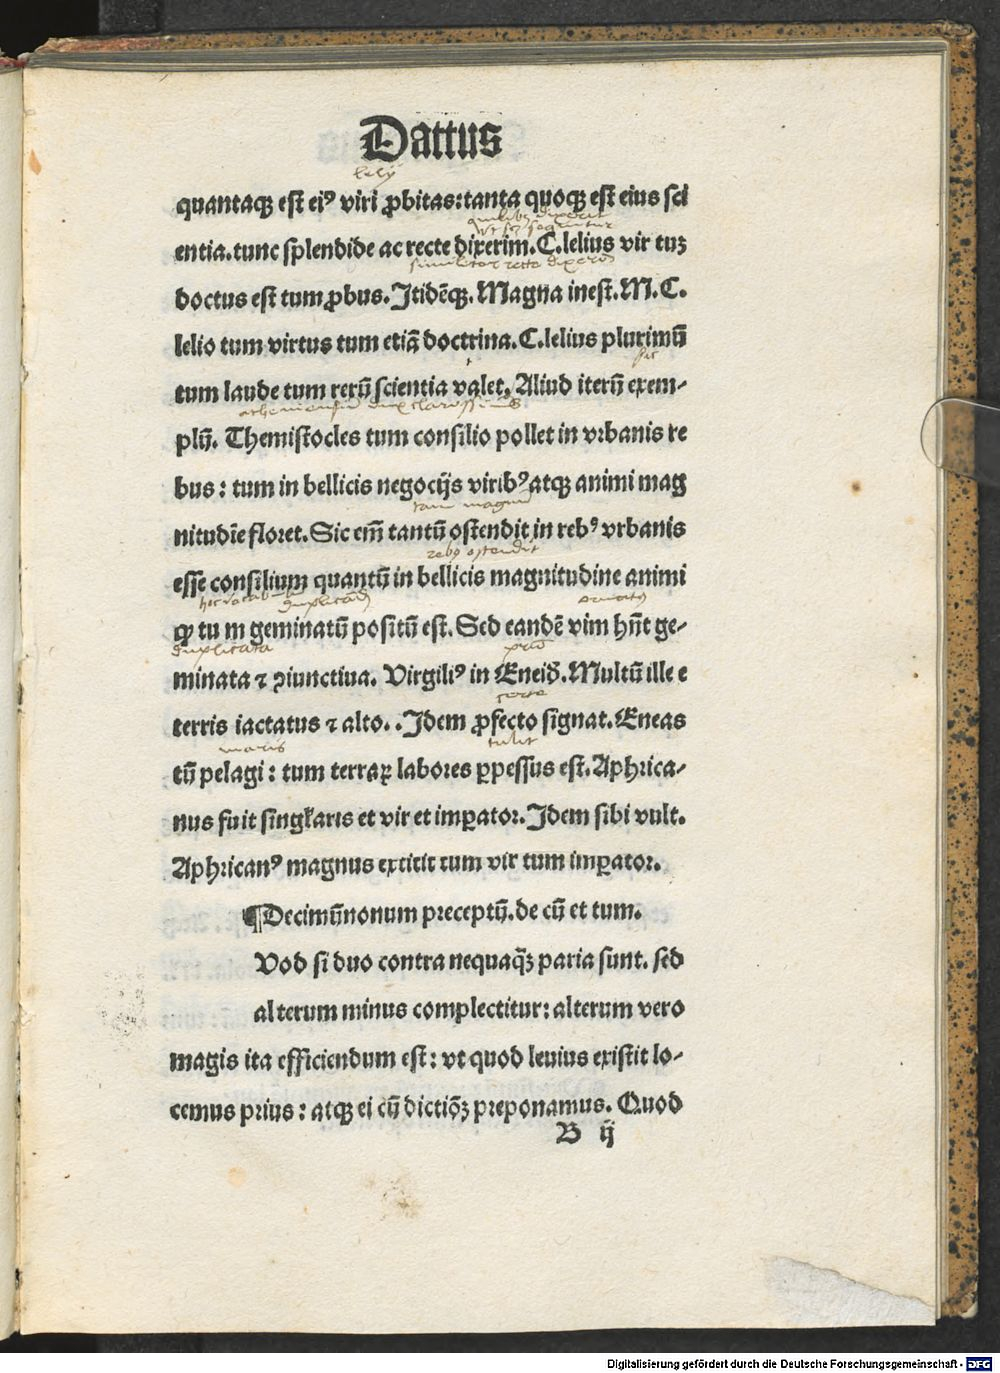 Dattus
lelij
quantaqꝫ est eiꝰ viri ꝓbitas: tanta quoqꝫ est eius sci
quilibꝫ dixerit
vt sequitur
entia. tunc splendide ac recte dixerim. C. lelius vir tuꝫ
similiter recte dixeris
doctus est tum ꝓbus. Itidēqꝫ. Magna inest. M. C.
lelio tum virtus tum etiā doctrina. C. lelius plurimū
sic
tum laude tum rerū scientia valet. Aliud iterū exem-
atheniensiū dux clarissimus
plū. Themistocles tum consilio pollet in vrbanis re
bus: tum in bellicis negocijs viribꝰ atqꝫ animi mag
tam magnū
nitudīe floret. Sic em̄ tantū ostendit in rebꝰ vrbanis
rebꝰ ostendit
esse consilium quantū in bellicis magnitudine animi
hoc vocabulū duplicatū
ꝙ tu m geminatū positū est. Sed eandē vim hn̄t ge-
duplicata
minata ⁊ ꝯiunctiua. Virgiliꝰ in Eneid̄. Multū ille e
certe
terris iactatus ⁊ alto. . Idem ꝓfecto signat. Eneas
maris tulit
tū pelagi: tum terraꝝ labores ꝑpessus est. Aphrica-
nus fuit singl̄aris et vir et imꝑator. Idem sibi vult.
Aphricanꝰ magnus extitit tum vir tum imꝑator.
¶Decimūnonum preceptū. de cū et tum.
Vod si duo contra nequaq̄ꝫ paria sunt. sed
al terum minus complectitur: alterum vero
magis ita efficiendum est: vt quod leuius existit lo-
cemus prius: atqꝫ ei cū dictiōꝫ preponamus. Quod
B ij
Digitalisierung gefördert durch die Deutsche Forschungsgemeinschaft - DFG